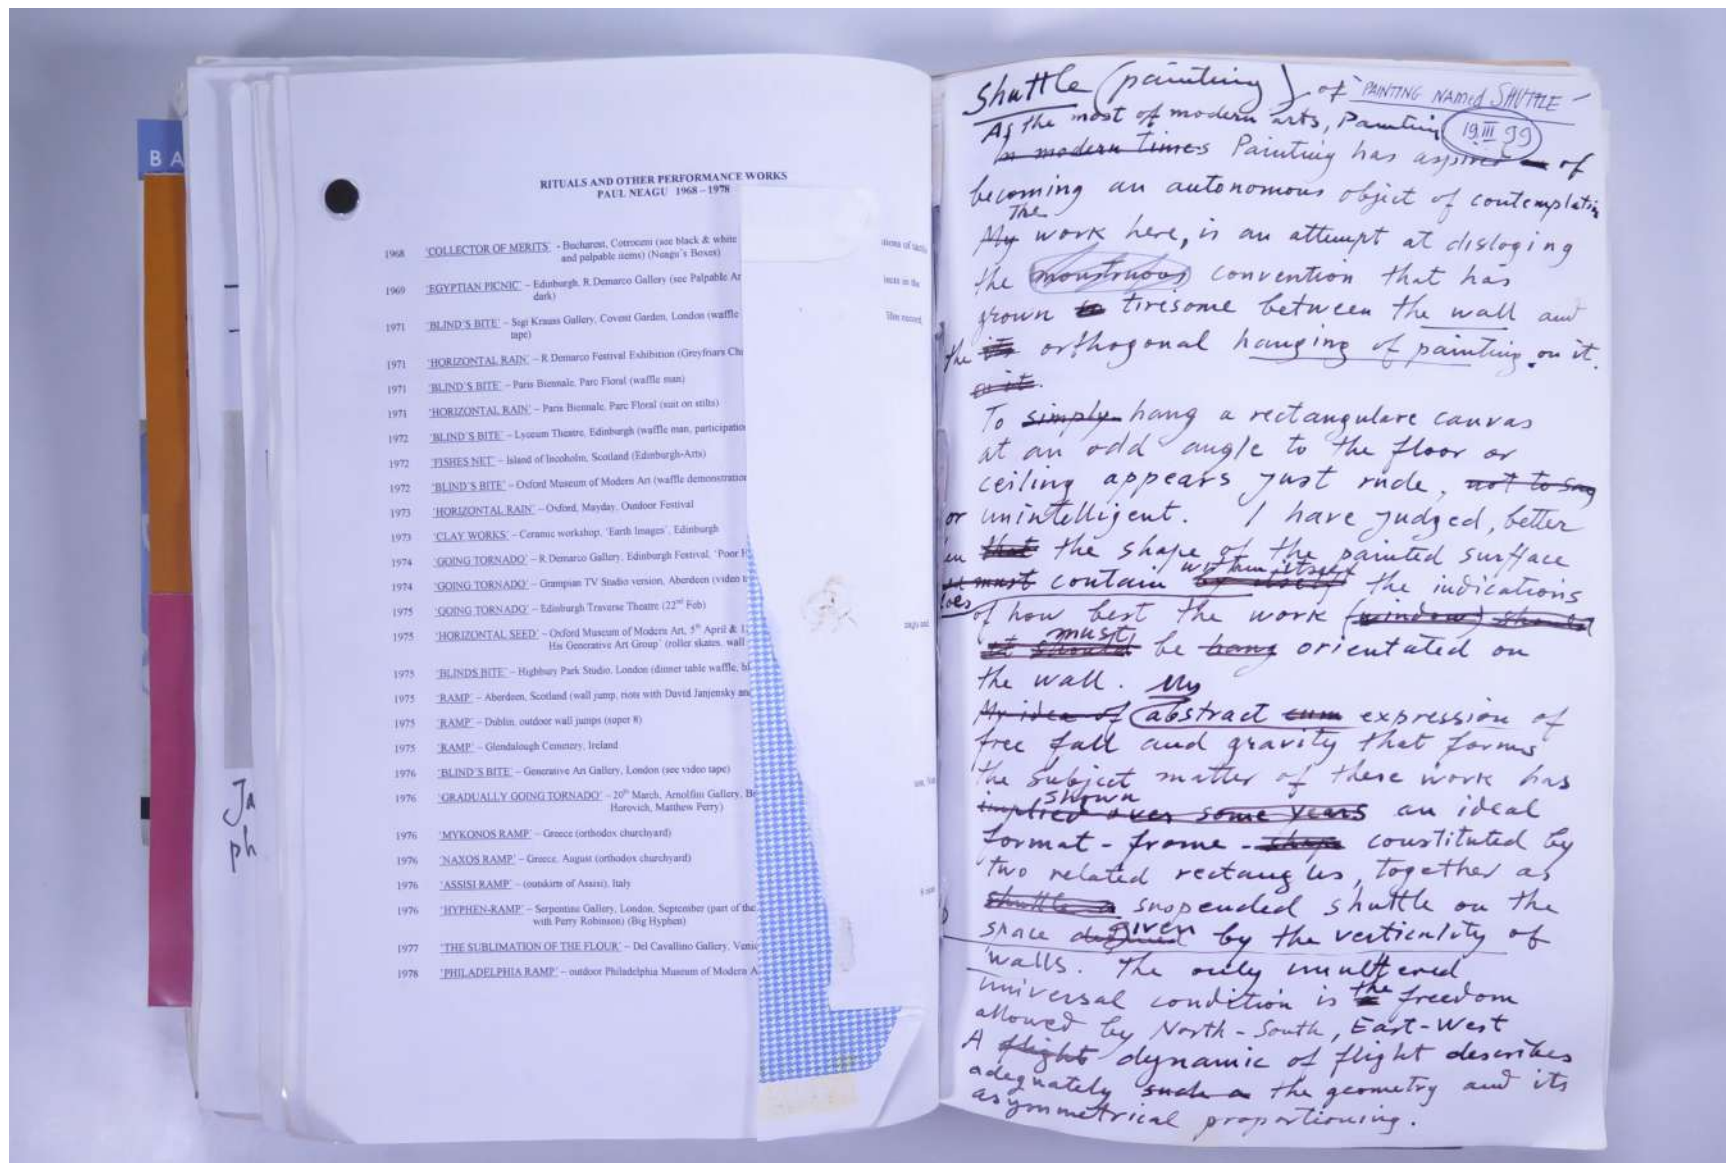 BA
Ja
ph
RITUALS AND OTHER PERFORMANCE WORKS
PAUL NEAGU 1968 – 1978
1968 'COLLECTOR OF MERITS' - Bucharest, Cotroceni (see black & white
and palpable items) (Neagu's Boxes)
1969 'EGYPTIAN PICNIC' – Edinburgh, R.Demarco Gallery (see Palpable Ar
dark)
1971 'BLIND'S BITE' – Sigi Krauss Gallery, Covent Garden, London (waffle
tape)
1971 'HORIZONTAL RAIN' – R Demarco Festival Exhibition (Greyfriars Ch
1971 'BLIND'S BITE' – Paris Biennale, Parc Floral (waffle man)
1971 'HORIZONTAL RAIN' – Paris Biennale, Parc Floral (suit on stilts)
1972 'BLIND'S BITE' – Lyceum Theatre, Edinburgh (waffle man, participatio
1972 'FISHES NET' – Island of Incoholm, Scotland (Edinburgh-Arts)
1972 'BLIND'S BITE' – Oxford Museum of Modern Art (waffle demonstration
1973 'HORIZONTAL RAIN' – Oxford, Mayday, Outdoor Festival
1973 'CLAY WORKS' – Ceramic workshop, 'Earth Images', Edinburgh
1974 'GOING TORNADO' – R Demarco Gallery, Edinburgh Festival, 'Poor
1974 'GOING TORNADO' – Grampian TV Studio version, Aberdeen (video
1975 'GOING TORNADO' – Edinburgh Traverse Theatre (22nd Feb)
1975 'HORIZONTAL SEED' – Oxford Museum of Modern Art, 5th April & 1
His Generative Art Group' (roller skates, wall
1975 'BLINDS BITE' – Highbury Park Studio, London (dinner table waffle,
1975 'RAMP' – Aberdeen, Scotland (wall jump, riots with David Janjensky an
1975 'RAMP' – Dublin, outdoor wall jumps (super 8)
1975 'RAMP' – Glendalough Cemetery, Ireland
1976 'BLIND'S BITE' – Generative Art Gallery, London (see video tape)
1976 'GRADUALLY GOING TORNADO' – 20th March, Arnolfini Gallery, Br
Horovich, Matthew Perry)
1976 'MYKONOS RAMP' – Greece (orthodox churchyard)
1976 'NAXOS RAMP' – Greece, August (orthodox churchyard)
1976 'ASSISI RAMP' – (outskirts of Assisi), Italy
1976 'HYPHEN-RAMP' – Serpentine Gallery, London, September (part of the
with Perry Robinson) (Big Hyphen)
1977 'THE SUBLIMATION OF THE FLOUR' – Del Cavallino Gallery, Venic
1978 'PHILADELPHIA RAMP' – outdoor Philadelphia Museum of Modern A
Shuttle (painting) of "PAINTING NAMed SHUTTLE"
As the most of modern arts, Painting 19 III 99
in modern times Painting has aspired of
becoming an autonomous object of contemplation
The
My work here, is an attempt at disloging
the monstruous convention that has
grown tiresome between the wall and
the its orthogonal hanging of painting on it.
on it.
To simply hang a rectangulare canvas
at an odd angle to the floor or
ceiling appears just rude, not to say
or unintelligent. I have judged, better
that the shape of the painted surface
must contain within itself by itself the indications
of how best the work (window) should
must
it should be hang orientated on
the wall. My
My idea of abstract cum expression of
free fall and gravity that forms
the subject matter of these work has
shown
implied over some years an ideal
format - frame - shape constituted by
two related rectangles, together as
shuttle a suspended shuttle on the
given
space defined by the verticality of
walls. The only unaltered
universal condition is the freedom
allowed by North-South, East-West
A flight dynamic of flight describes
adequately such a the geometry and its
asymmetrical proportioning.